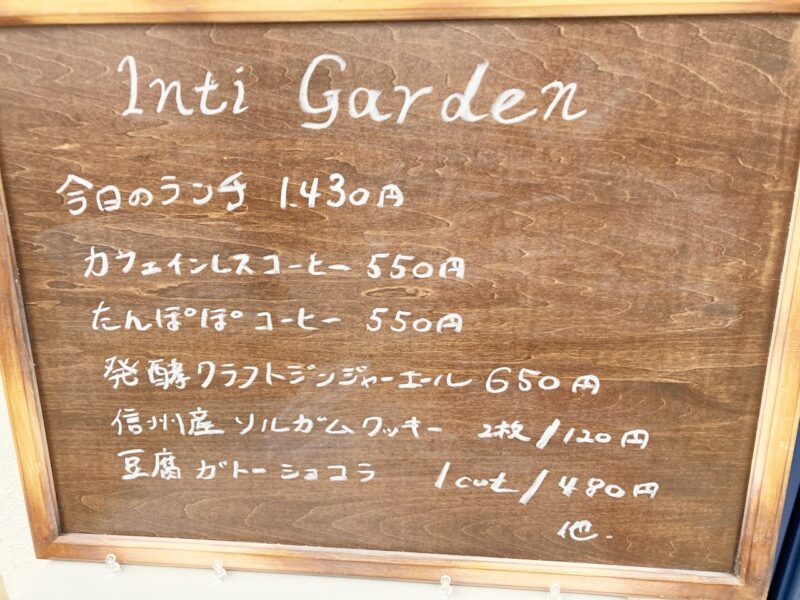 Inti Garden
今日のランチ 1,430円
カフェインレスコーヒー 550円
たんぽぽコーヒー 550円
発酵クラフトジンジャーエール 650円
信州産ソルガムクッキー 2枚/120円
豆腐ガトーショコラ 1cut/480円
他.